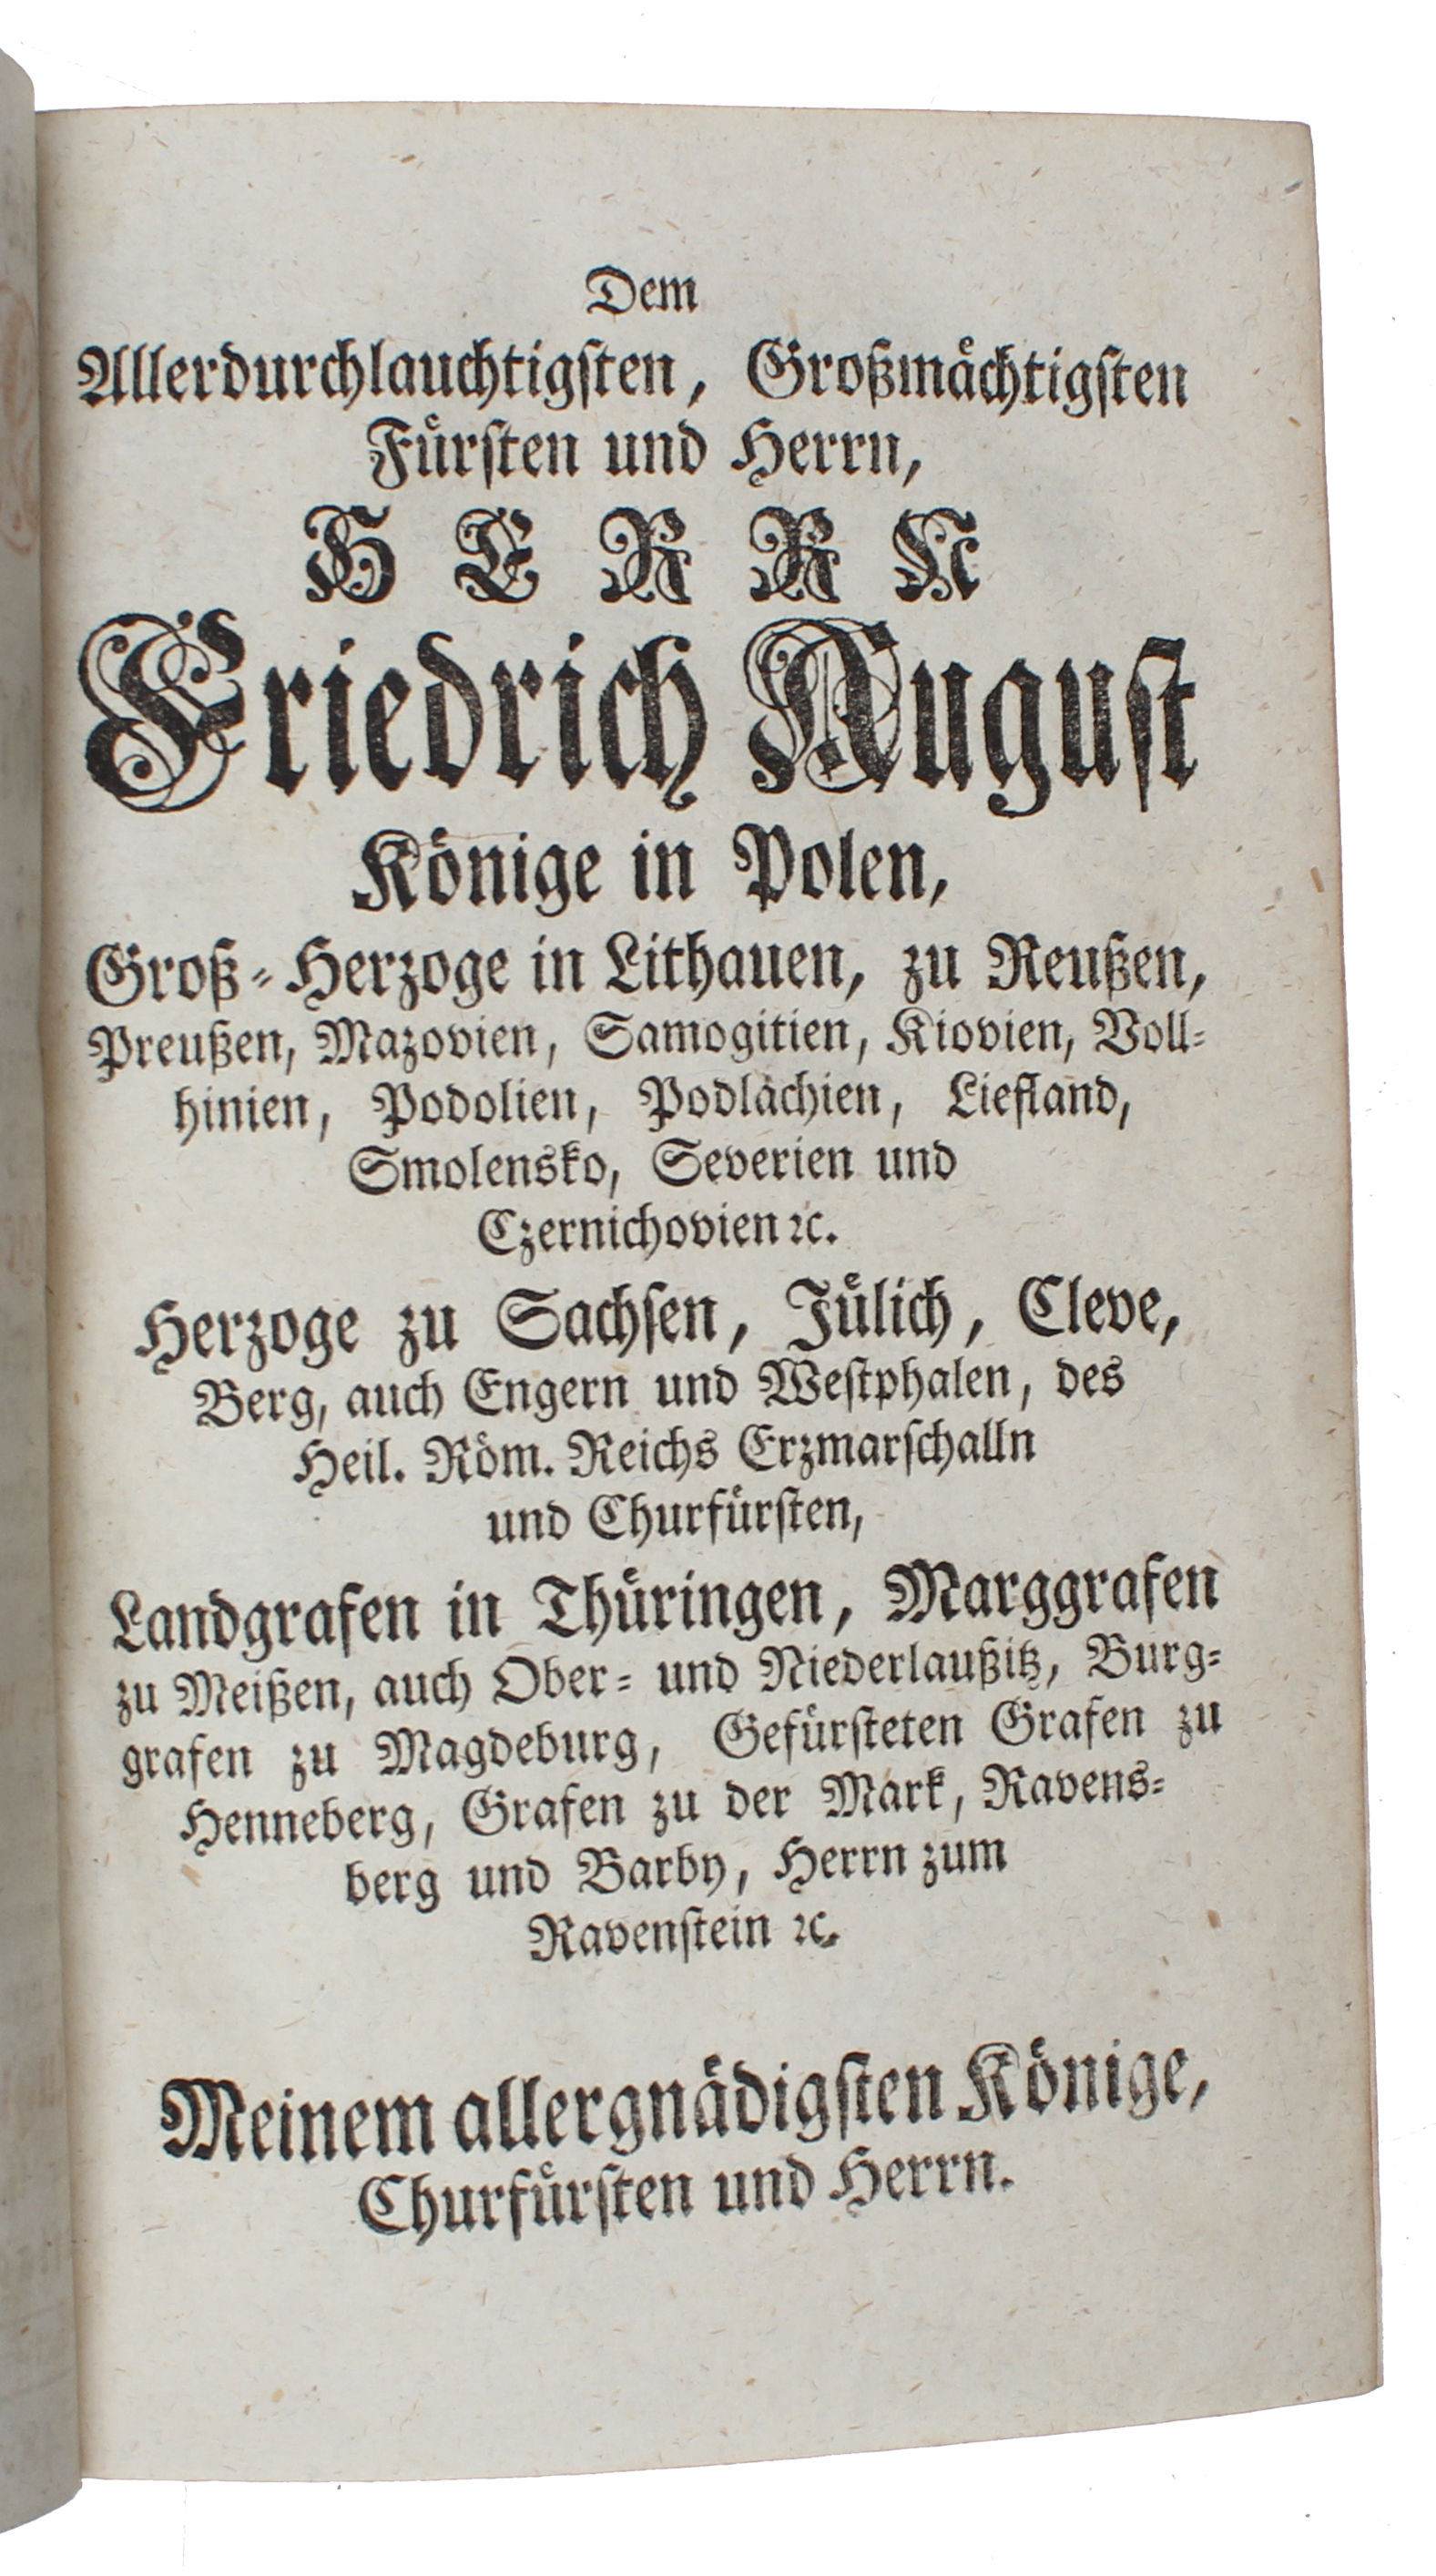 Dem
Allerdurchlauchtigſten, Großmächtigſten
Fürſten und Herrn,
HERRN
Friedrich Auguſt
Könige in Polen,
Groß-Herzoge in Lithauen, zu Reußen,
Preußen, Mazovien, Samogitien, Kiovien, Voll-
hinien, Podolien, Podlachien, Liefland,
Smolensko, Severien und
Czernichovien ꝛc.
Herzoge zu Sachſen, Jülich, Cleve,
Berg, auch Engern und Weſtphalen, des
Heil. Röm. Reichs Erzmarſchalln
und Churfürſten,
Landgrafen in Thüringen, Marggrafen
zu Meißen, auch Ober- und Niederlaußitz, Burg-
grafen zu Magdeburg, Gefürſteten Grafen zu
Henneberg, Grafen zu der Mark, Ravens-
berg und Barby, Herrn zum
Ravenſtein ꝛc.
Meinem allergnädigſten Könige,
Churfürſten und Herrn.